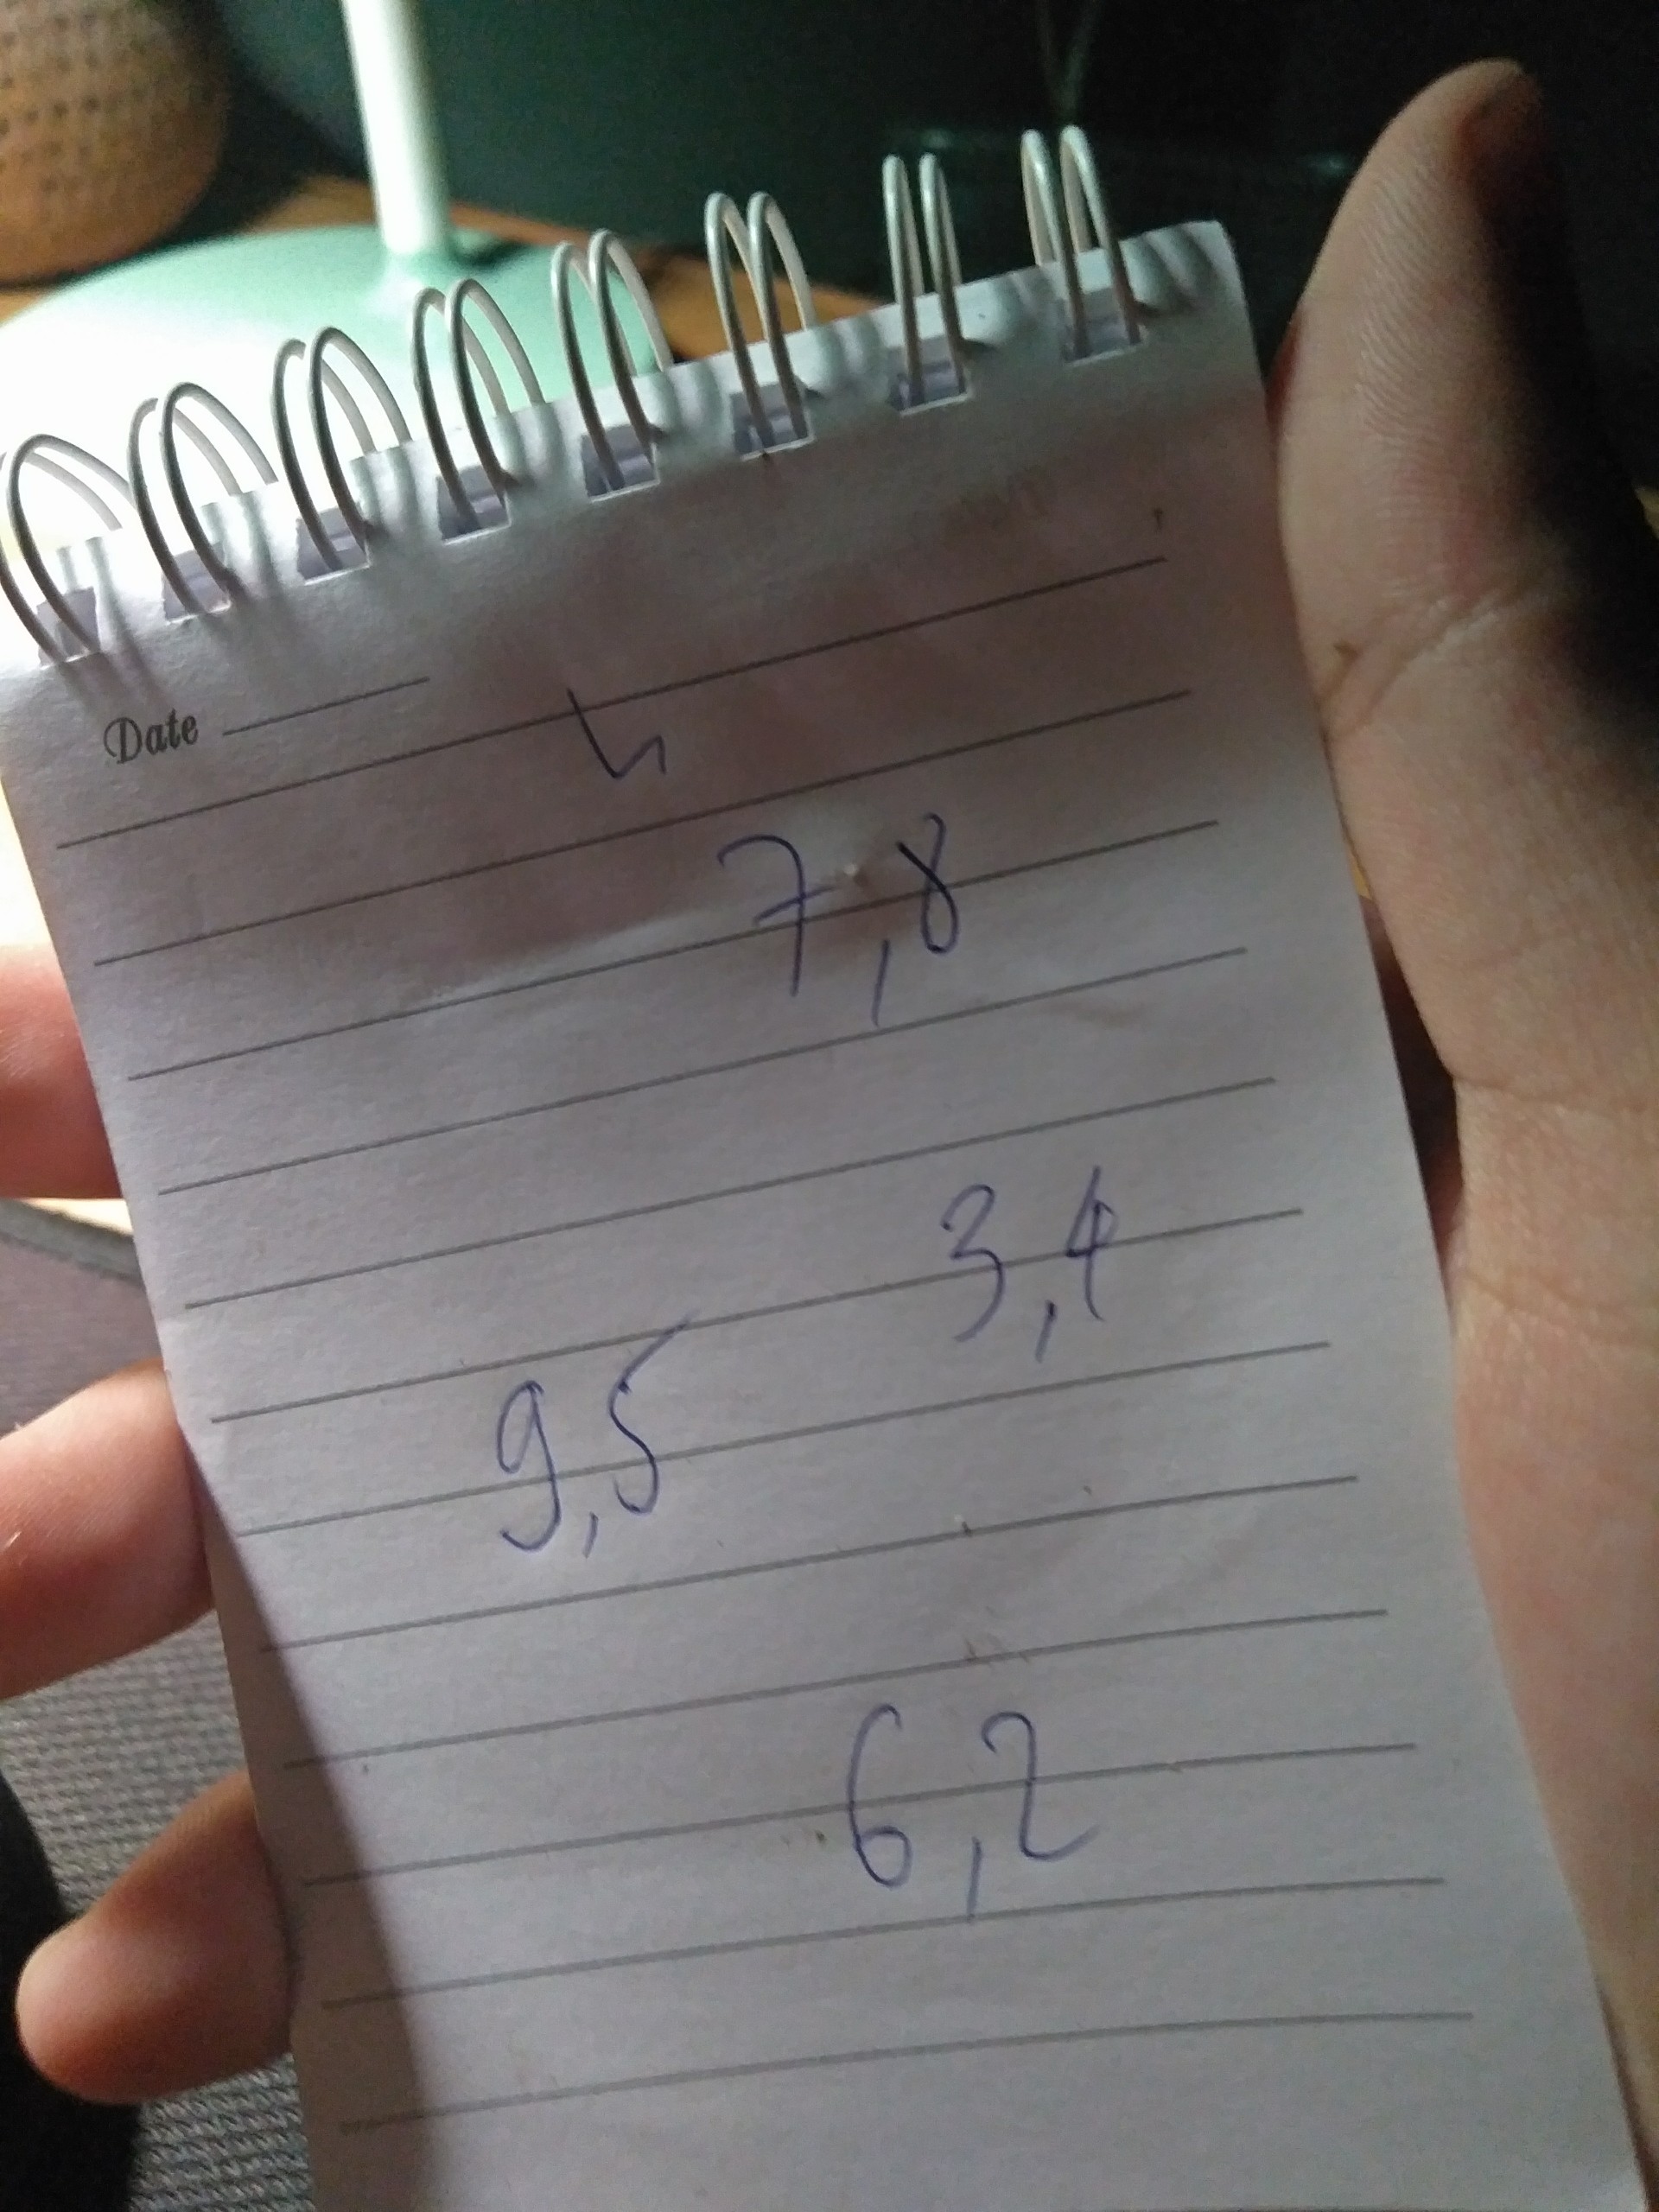 Date
h
7,8
3,4
9,5
6,2